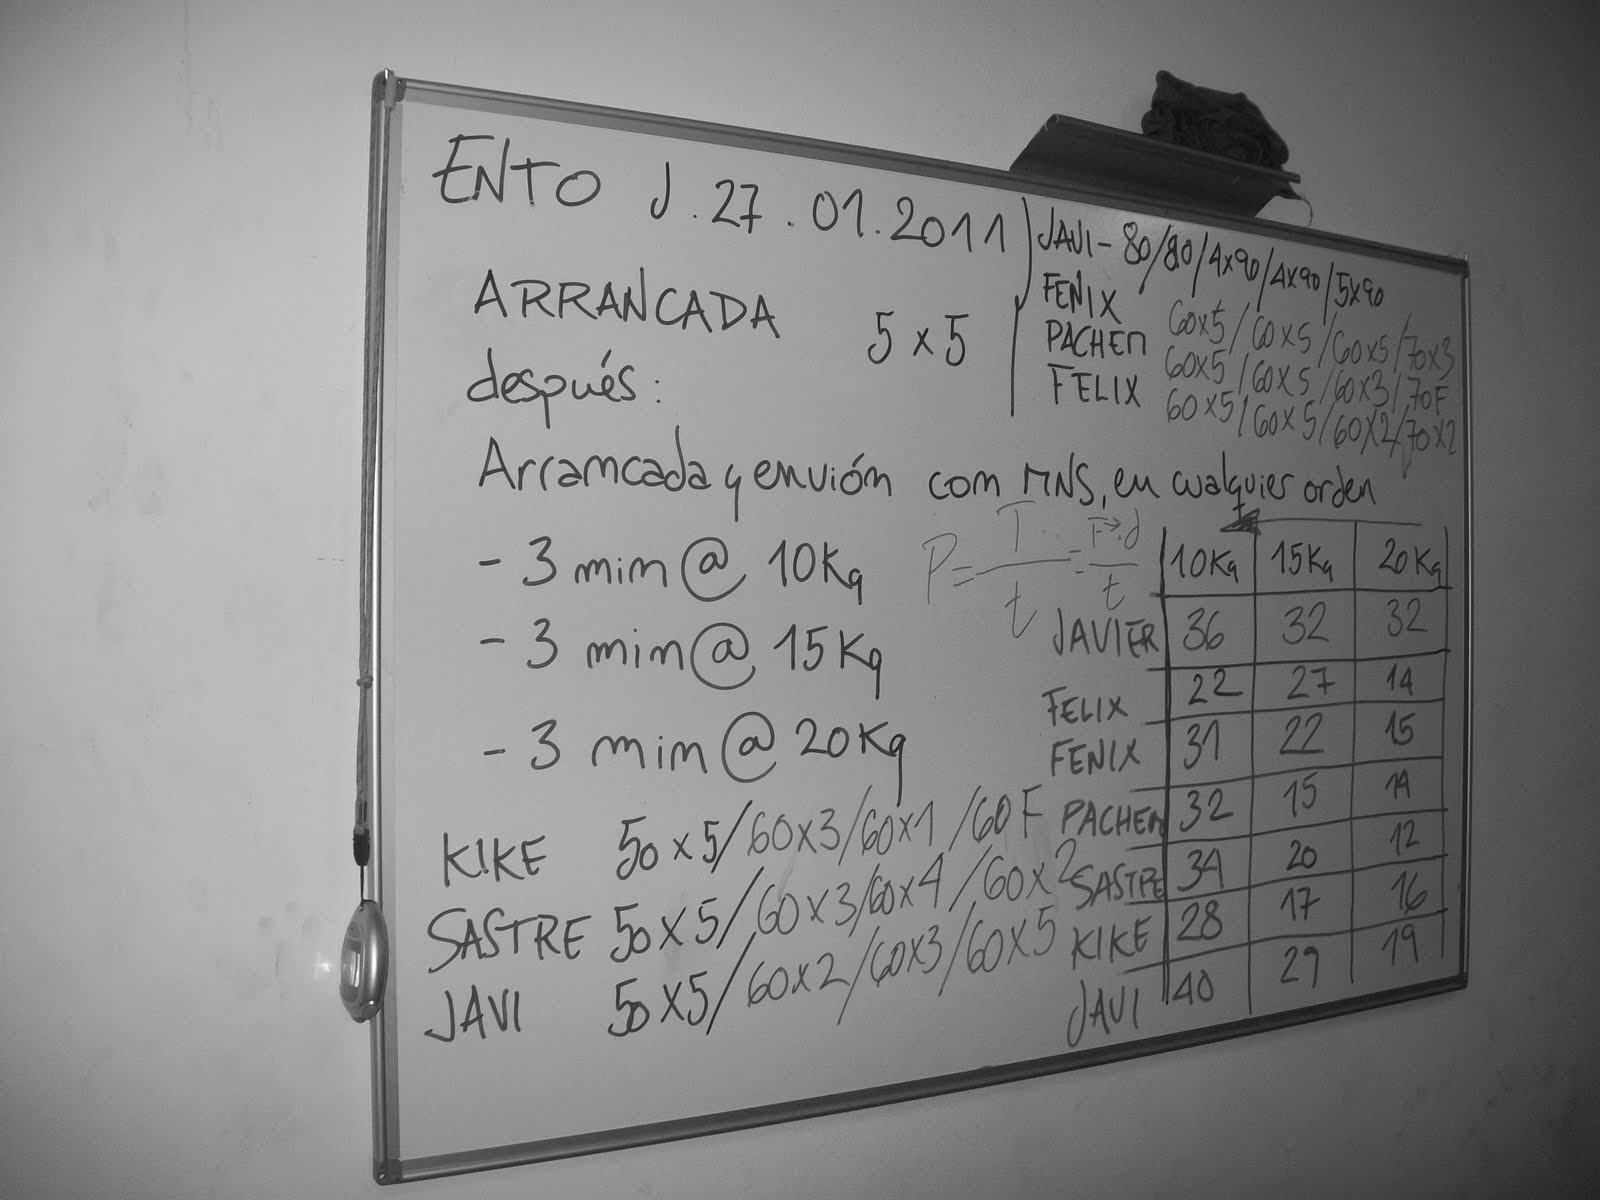 ENTO J. 27.01.2011
ARRANCADA 5x5
después:
JAVI - 80/80/4x90/4x90/5x90
FENIX 60x5/60x5/60x5/70x3
PACHEN 60x5/60x5/60x3/70F
FELIX 60x5/60x5/60x2/70x2
Arrancada y envión con MNS, en cualquier orden
- 3 min @ 10Kg
- 3 min @ 15Kg
- 3 min @ 20Kg
P = T / t = F·d / t
10Kg 15Kg 20Kg
JAVIER 36 32 32
FELIX 22 27 14
FENIX 31 22 15
PACHEN 32 15 14
SASTRE 34 20 12
KIKE 28 17 16
JAVI 40 29 19
KIKE 50x5/60x3/60x1/60F
SASTRE 50x5/60x3/60x4/60x2
JAVI 50x5/60x2/60x3/60x5